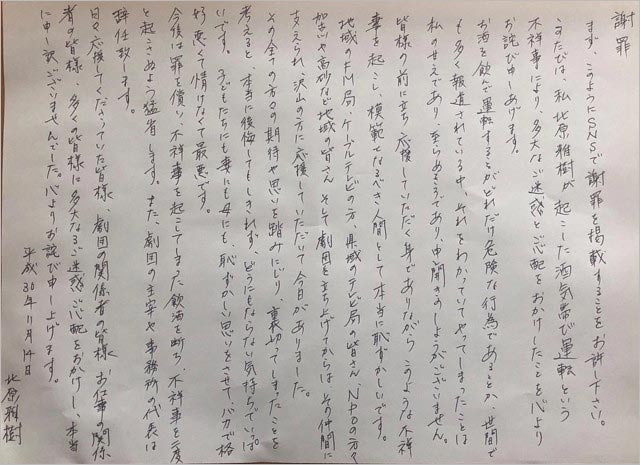 謝罪
まず、このようにSNSで謝罪を掲載することをお許し下さい。
このたびは、私北原雅樹が起こした酒気帯び運転という
不祥事により、多大なご迷惑とご心配をおかけしたことを心より
お詫び申しあげます。
お酒を飲んで運転することがどれだけ危険な行為であるとか、世間で
も多く報道されている中、それをわかっていてやってしまったことは
私の甘えであり、至らぬところであり、申し開きのしようがございません。
皆様の前に立ち応援していただく身でありながら、このような不祥
事を起こし、模範となるべき人間として本当に恥ずかしいです。
地域のFM局、ケーブルテレビの方、県域のテレビ局の皆さん、NPOの方々
加古川や高砂など地域の皆さん そして劇団を立ち上げてからは、その仲間に
支えられ、沢山の方に応援していただいて今日がありました。
その全ての方々の期待や思いを踏みにじり、裏切ってしまったことを
考えると、本当に後悔してもしきれず、どうにもならない気持ちでいっぱ
いです。子どもたちにも妻にも母にも、恥ずかしい思いをさせて、バカで格
好悪くて情けなくて最悪です。
今後は罪を償い、不祥事を起こしてしまった飲酒を断ち、不祥事を二度
と起こさぬよう猛省します。また、劇団の主宰や事務所の代表は
辞任致します。
日々応援してくださっていた皆様、劇団の関係者の皆様、お仕事の関係
者の皆様、多くの皆様に多大なるご迷惑ご心配をおかけし、本当
に申し訳ございませんでした。心よりお詫び申し上げます。
平成30年11月14日
北原雅樹